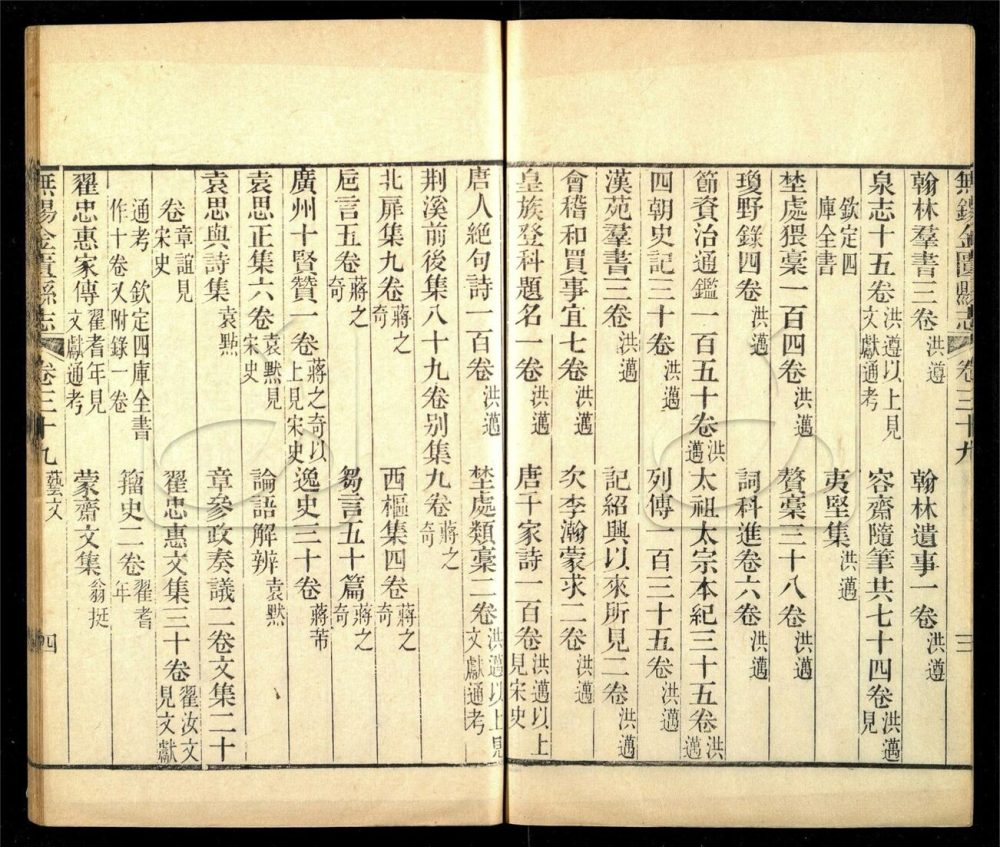 無錫金匱縣志 卷三十九 三
翰林羣書三卷洪遵 翰林遺事一卷洪遵
泉志十五卷洪遵以上見文獻通考 容齋隨筆共七十四卷洪邁見
欽定四庫全書 夷堅集洪邁
埜處猥稾一百四卷洪邁 贅稾三十八卷洪邁
瓊野錄四卷洪邁 詞科進卷六卷洪邁
節資治通鑑一百五十卷洪邁 太祖太宗本紀三十五卷洪邁
四朝史記三十卷洪邁 列傳一百三十五卷洪邁
漢苑羣書三卷洪邁 記紹興以來所見二卷洪邁
會稽和買事宜七卷洪邁 次李瀚蒙求二卷洪邁
皇族登科題名一卷洪邁 唐千家詩一百卷洪邁以上見宋史
唐人絶句詩一百卷洪邁 埜處類稾二卷洪邁以上見文獻通考
荆溪前後集八十九卷别集九卷蔣之奇
北扉集九卷蔣之奇 西樞集四卷蔣之奇
巵言五卷蔣之奇 芻言五十篇蔣之奇
廣州十賢贊一卷蔣之奇以上見宋史 逸史二十卷蔣芾
袁思正集六卷袁默見宋史 論語解辨袁默
袁思與詩集袁點 章參政奏議二卷文集二十
卷章誼見宋史 翟忠惠文集三十卷翟汝文見文獻
通考 欽定四庫全書作十卷又附錄一卷 籀史二卷翟耆年
翟忠惠家傳翟耆年見文獻通考 蒙齋文集翁挺
無錫金匱縣志 卷三十九 藝文 四